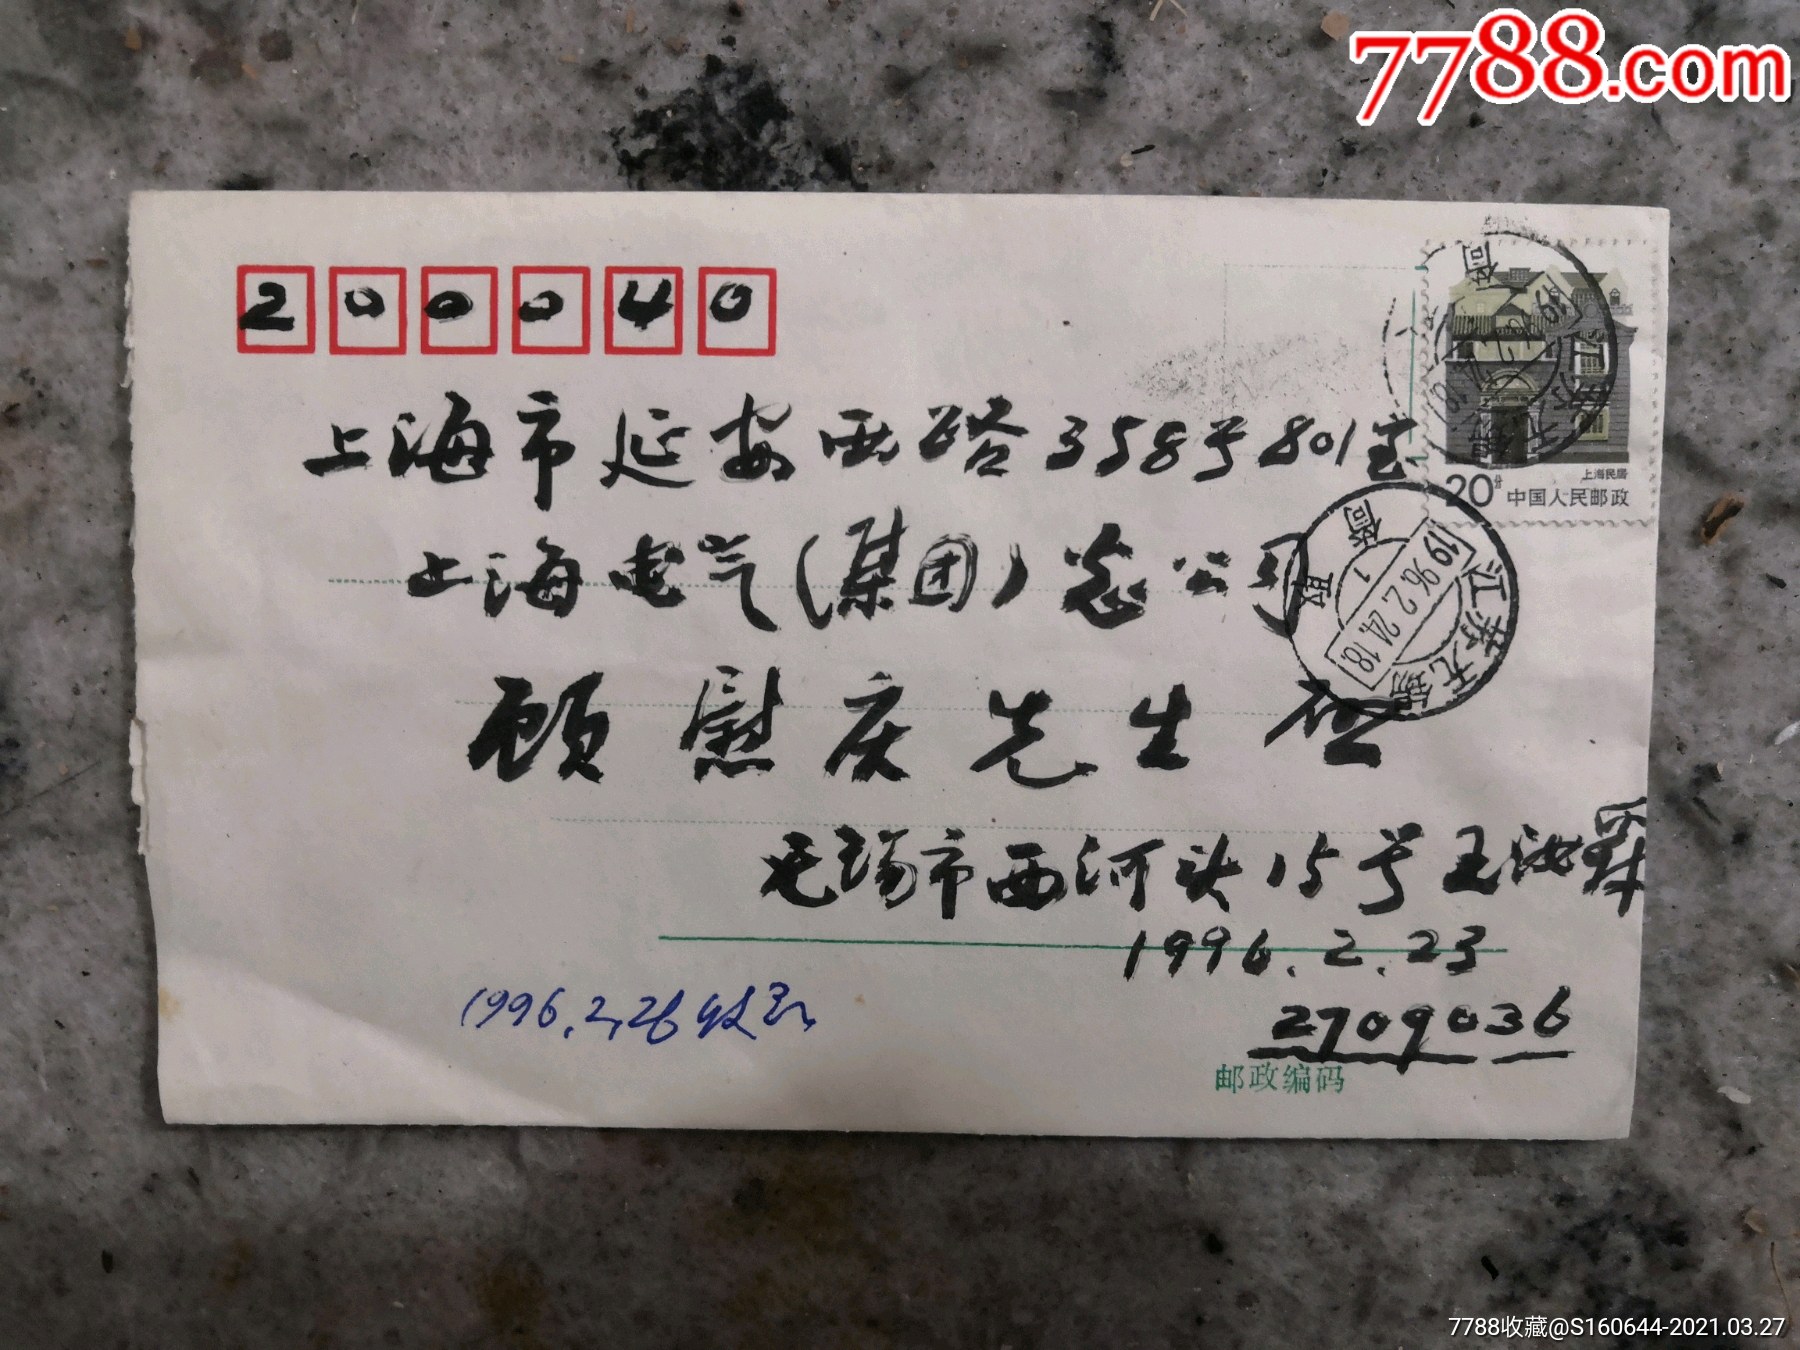 7788.com
200040
上海市延安西路358号801室
上海电气(集团)总公司
顾慰庆先生启
无锡市西河头15号王汝霖
1996.2.23
2709036
1996.2,26收到
邮政编码
上海民居
20分 中国人民邮政
江苏无锡
1996.2.24.18
筒取
1
7788收藏@S160644-2021.03.27